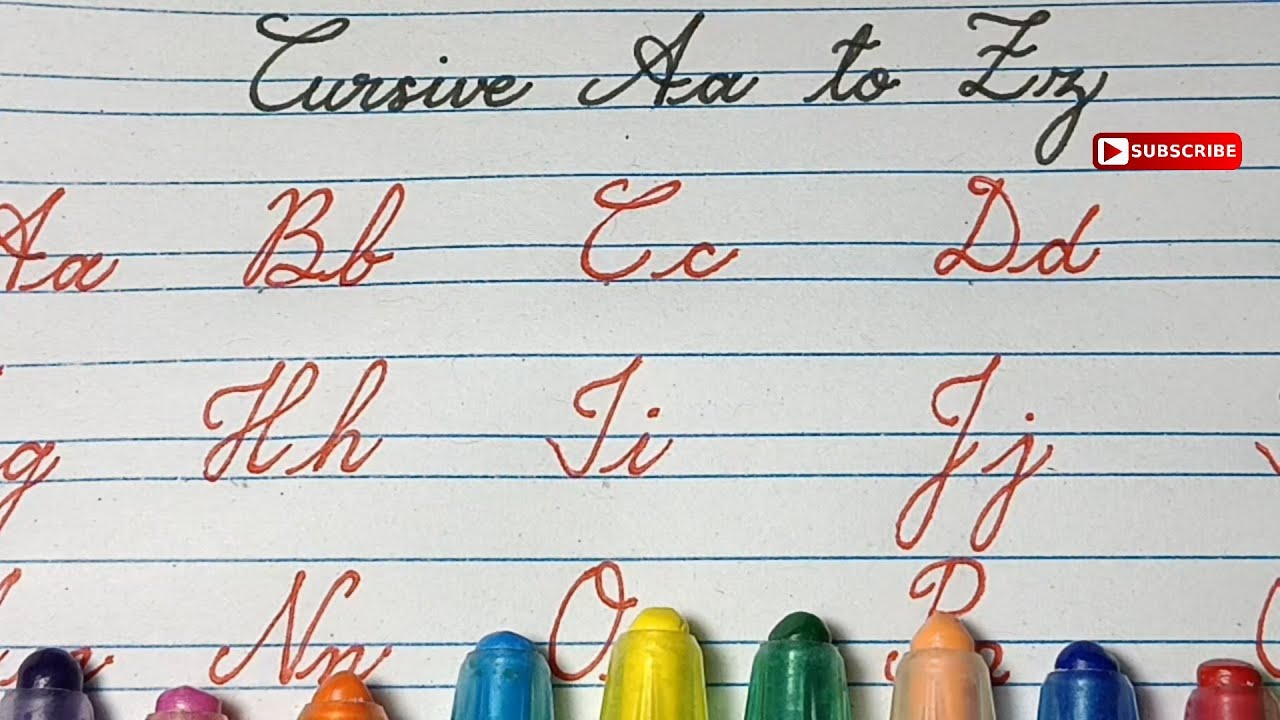 Cursive Aa to Zz
SUBSCRIBE
Aa Bb Cc Dd
g Hh Ii Jj
Nn O P